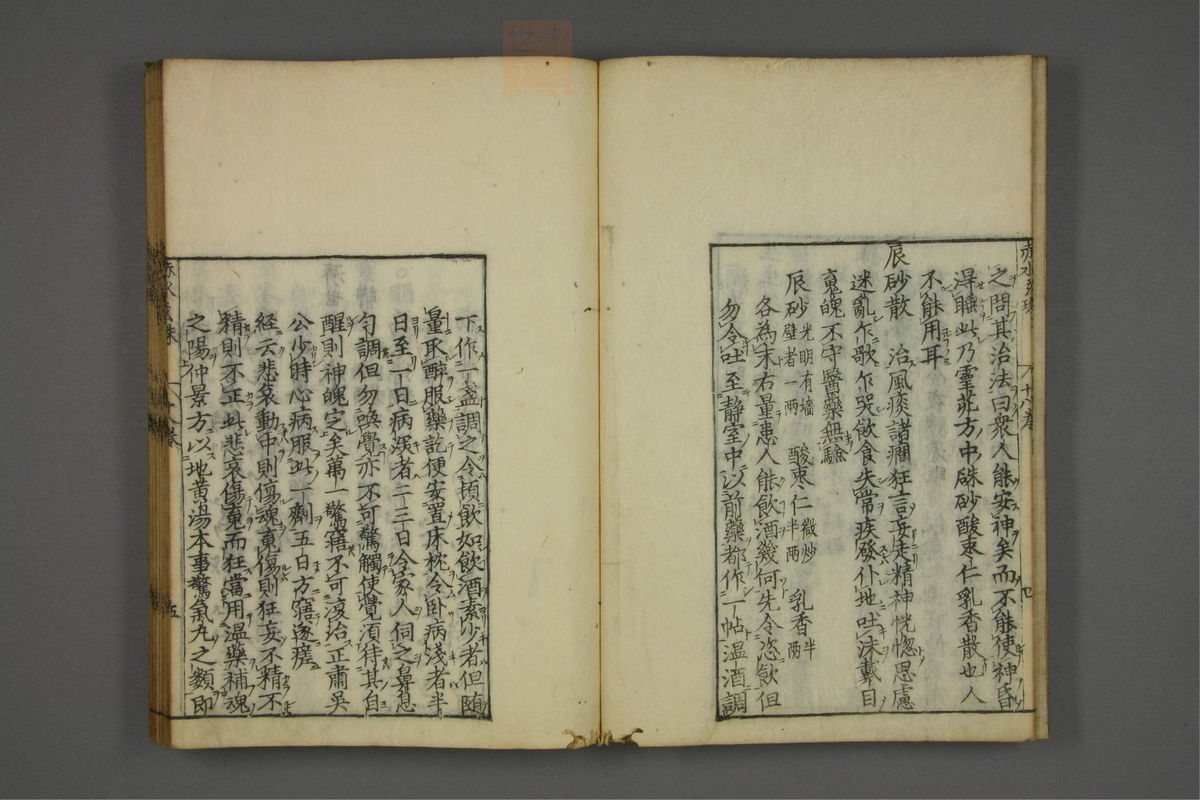 之問其治法曰衆人能安神矣而不能使神昏
得睡此乃靈苑方中硃砂酸棗仁乳香散也人
不能用耳
辰砂散 治風痰諸癇狂言妄走精神恍惚思慮
迷亂乍歌乍哭飲食失常疾發仆地吐沫戴目
䰟魄不守醫藥無驗
辰砂光明有墻壁者一兩 酸棗仁微炒半兩 乳香半兩
各為末右量患人能飲酒幾何先令恣飲但
勿令吐至靜室中以前藥都作一帖温酒調
下作一盞調之令頓飲如飲酒素少者但随
量取醉服藥訖便安置床枕令卧病淺者半
日至一日病深者二三日令家人伺之鼻息
匀調但勿喚覺亦不可驚觸使覺須待其自
醒則神魄定矣萬一驚寤不可復治正肅吳
公少時心病服此一劑五日方寤遂瘥
經云悲哀動中則傷魂䰟傷則狂妄不精不
精則不正此悲哀傷䰟而狂當用温藥補魂
之陽仲景方以地黄湯本事驚氣丸之類即
赤水玄珠 八十八卷 四
赤水玄珠 八十八卷 五